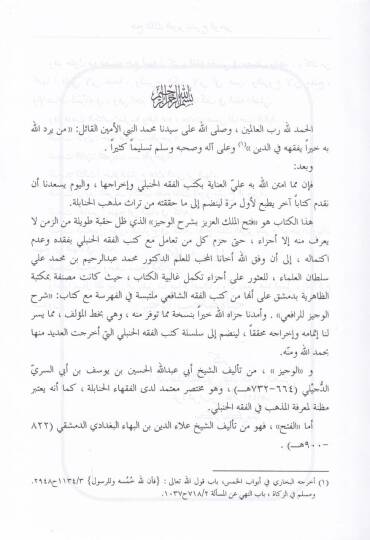 بسم الله الرحمن الرحيم
الحمد لله رب العالمين ، وصلى الله على سيدنا محمد النبي الأمين القائل: «من يرد الله
به خيراً يفقهه في الدين»(١) وعلى آله وصحبه وسلم تسليماً كثيراً .
وبعد:
فإن مما امتن الله به عليّ العناية بكتب الفقه الحنبلي وإخراجها ، واليوم يسعدنا أن
نقدم كتاباً آخر يطبع لأول مرة لينضم إلى ما حققته من تراث مذهب الحنابلة.
هذا الكتاب هو «فتح الملك العزيز بشرح الوجيز» الذي ظل حقبة طويلة من الزمن لا
يعرف منه إلا أجزاء ، حتى جزم كل من تعامل مع كتب الفقه الحنبلي بفقده وعدم
اكتماله ، إلى أن وفق الله أخانا المحب للعلم الدكتور محمد عبدالرحيم بن محمد علي
سلطان العلماء ، للعثور على أجزاء تكمل غالبية الكتاب ، حيث كانت مصنفة بمكتبة
الظاهرية بدمشق على أنها من كتب الفقه الشافعي ملتبسة في الفهرسة مع كتاب: «شرح
الوجيز للرافعي» . وأمدنا جزاه الله خيراً بنسخة مما توفر منه ، وهي بخط المؤلف ، مما يسر
لنا إتمامه وإخراجه محققاً ، لينضم إلى سلسلة كتب الفقه الحنبلي التي أخرجت العديد منها
بحمد الله ومنّه.
و «الوجيز» ، من تأليف الشيخ أبي عبدالله الحسين بن يوسف بن أبي السريّ
الدُّجيْلي (٦٦٤-٧٣٢هـ) ، وهو مختصر معتمد لدى الفقهاء الحنابلة ، كما أنه يعتبر
مظنة لمعرفة المذهب في الفقه الحنبلي.
أما «الفتح» ، فهو من تأليف الشيخ علاء الدين بن البهاء البغدادي الدمشقي (٨٢٢
-٩٠٠هـ) .
(١) أخرجه البخاري في أبواب الخمس، باب قول الله تعالى : {فأن لله خُمُسه وللرسول} ١١٣٤/٣ح٢٩٤٨.
ومسلم في الزكاة ، باب النهي عن المسألة ٧١٨/٢ح١٠٣٧.